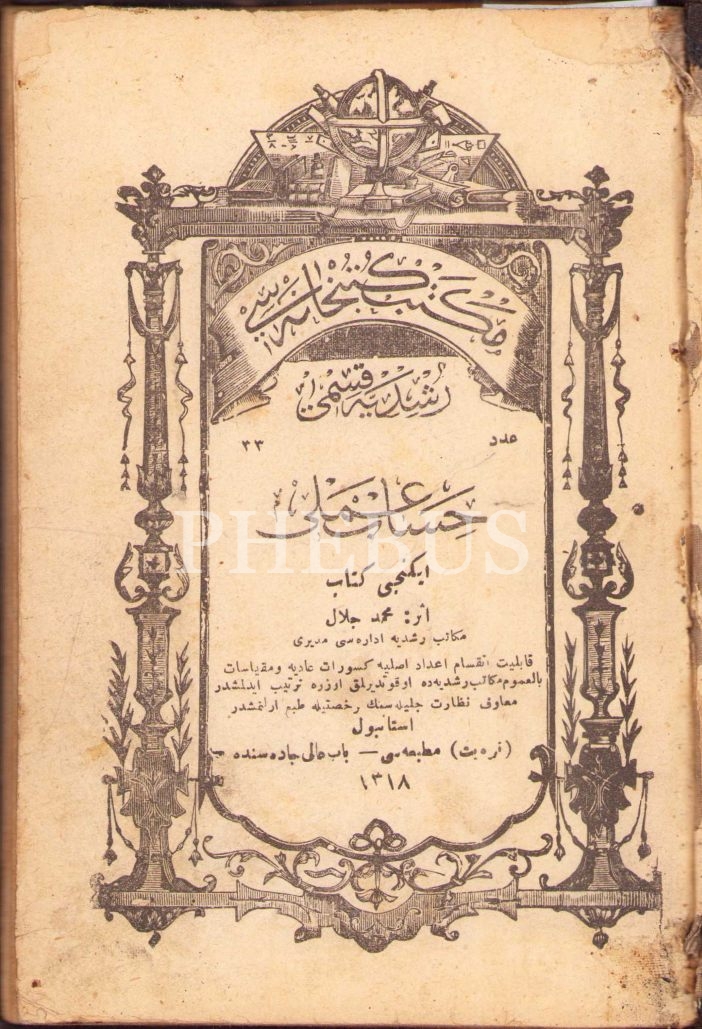 مكتب كتبخانه سی
رشدیه قسمی
عدد ٣٣
حساب عملی
PHEBUS
ایكنجی كتاب
اثر: محمد جلال
مكاتب رشدیه اداره سی مدیری
قابلیت انقسام اعداد اصلیه كسورات عادیه و مقیاسات
بالعموم مكاتب رشدیه ده اوقوتدیرلق اوزره ترتیب ایدلمشدر
معارف نظارت جلیله سنك رخصتیله طبع اولنمشدر
استانبول
(قره بت) مطبعه سی — باب عالی جاده سنده
١٣١٨